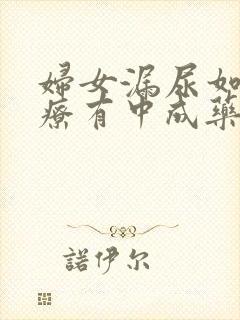 婦女漏尿如
療有中成藥
諾伊尔